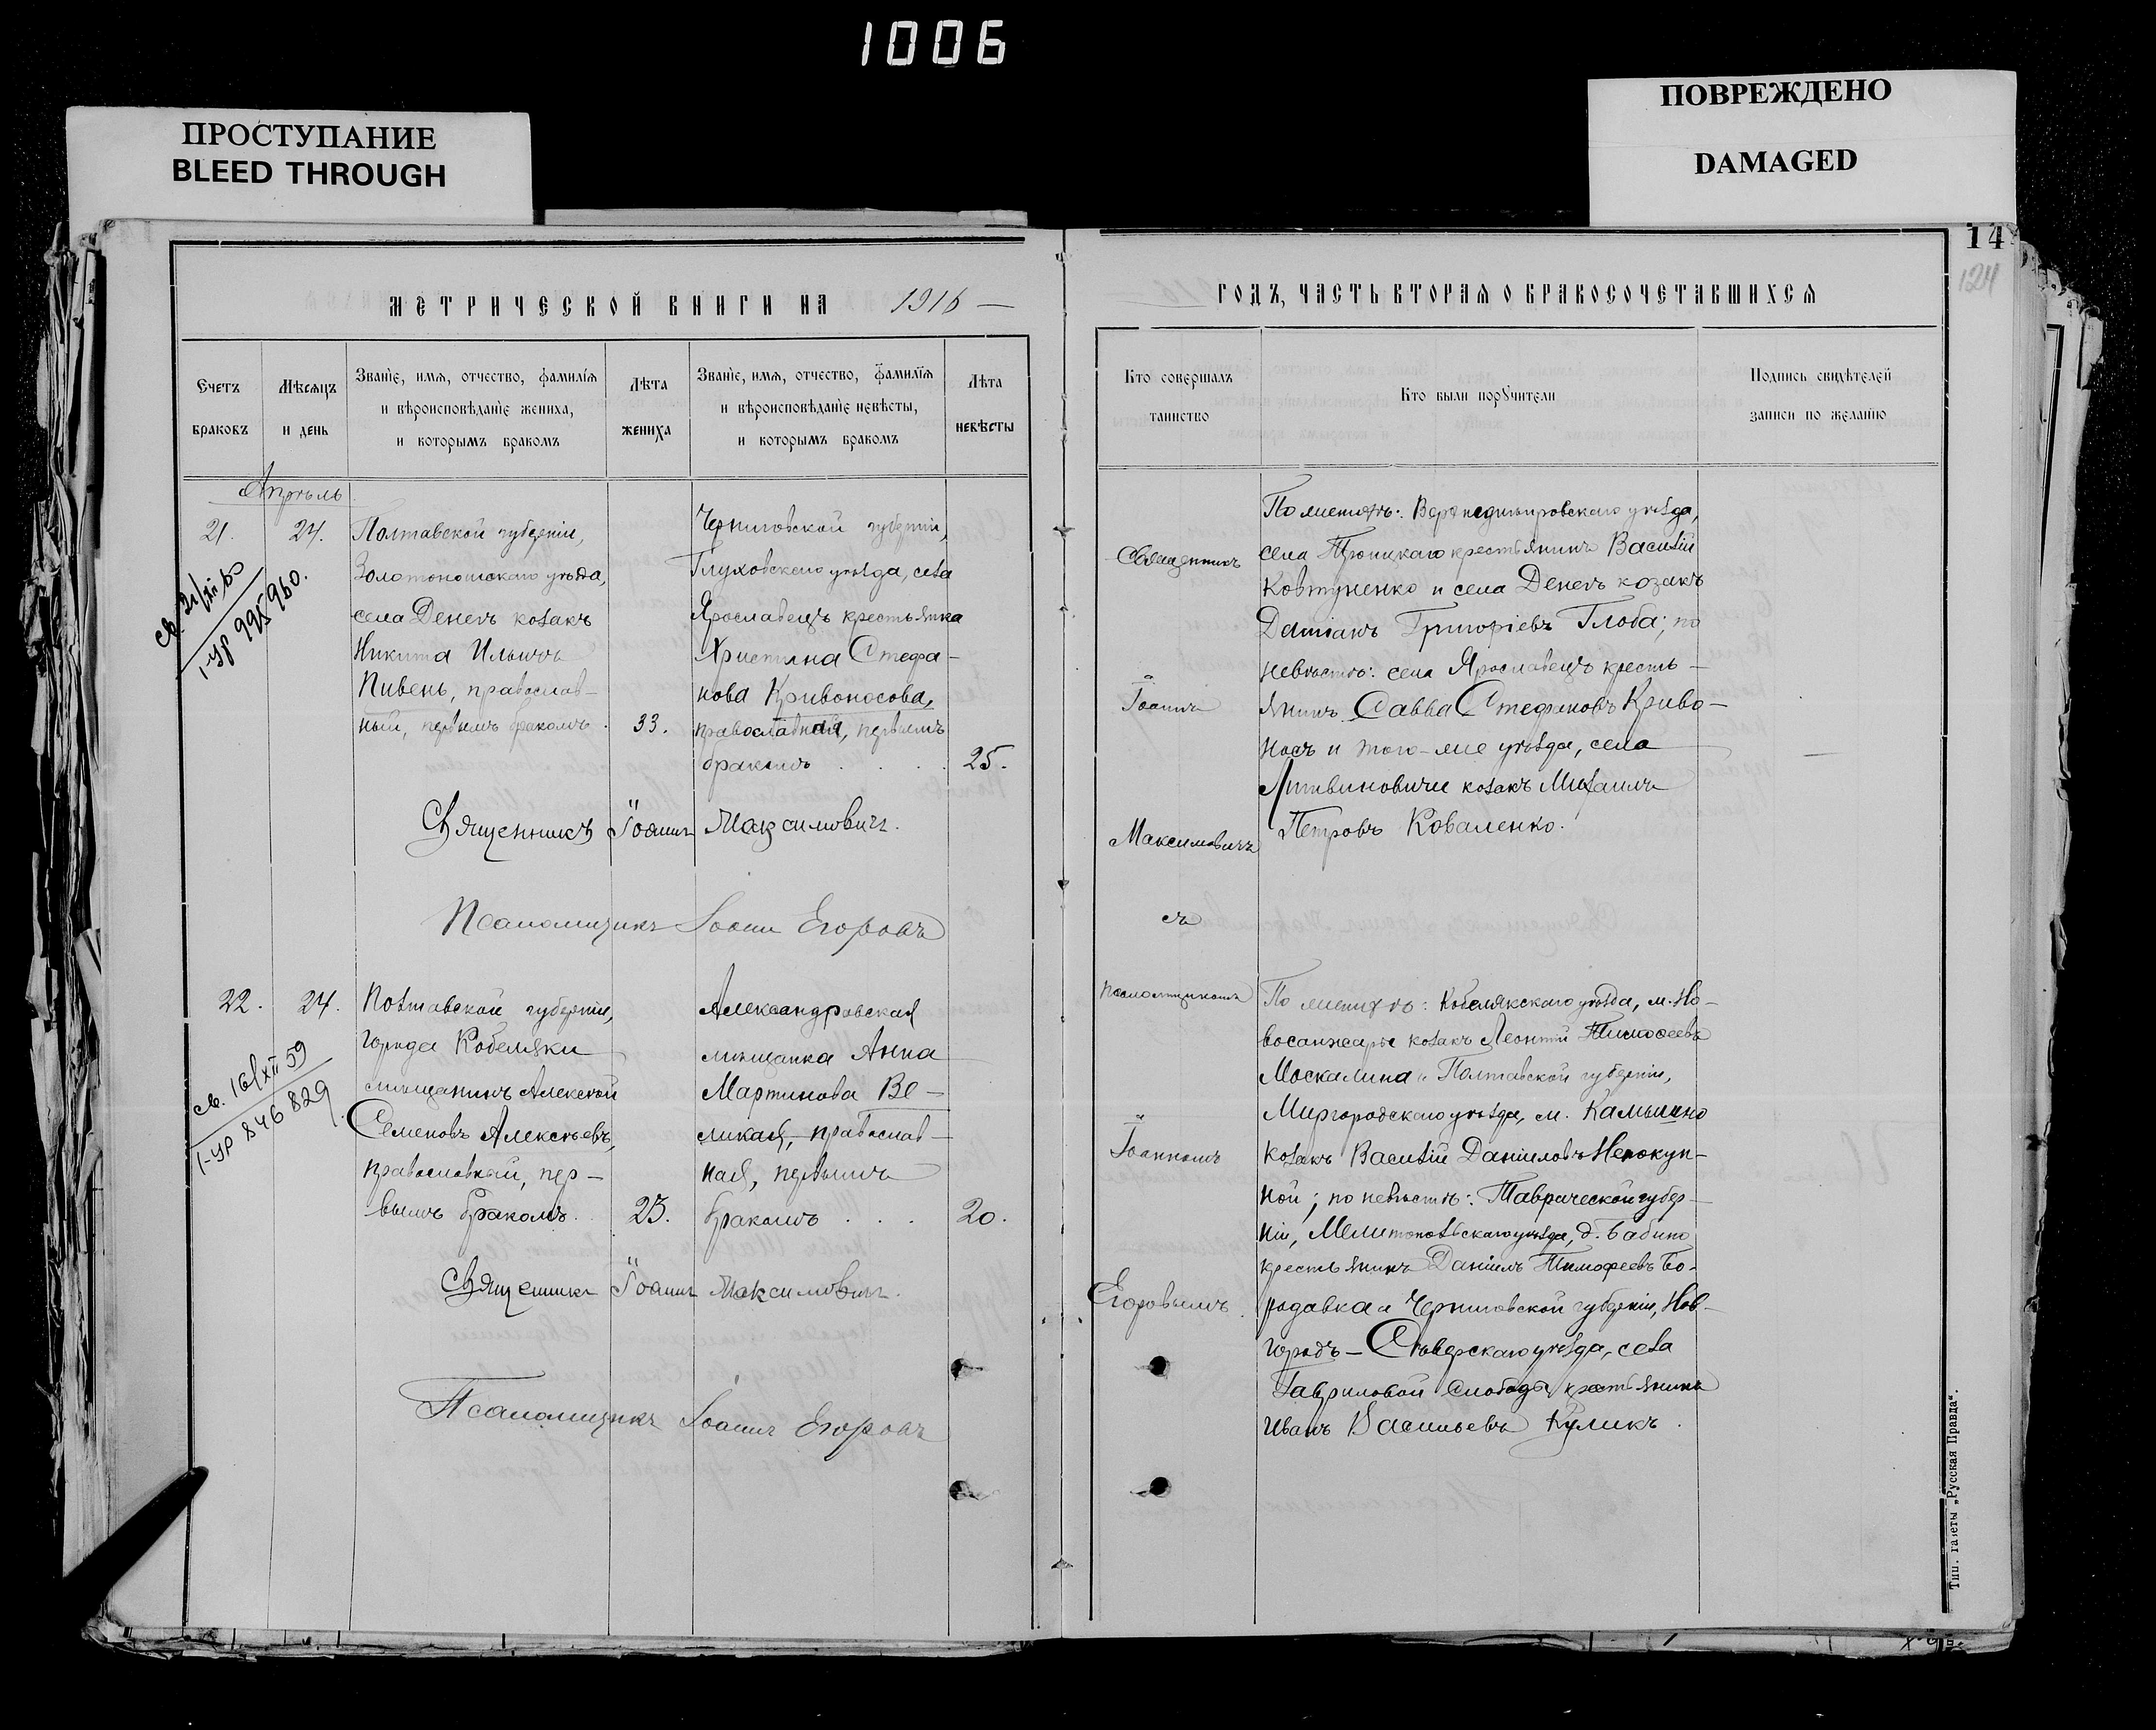 1006
ПРОСТУПАНИЕ
BLEED THROUGH
ПОВРЕЖДЕНО
DAMAGED
14
124
МЕТРИЧЕСКОЙ КНИГИ НА 1916
Счетъ
браковъ
Мѣсяцъ
и день
Званіе, имя, отчество, фамилія
и вѣроисповѣданіе жениха,
и которымъ бракомъ
Лѣта
жениха
Званіе, имя, отчество, фамилія
и вѣроисповѣданіе невѣсты,
и которымъ бракомъ
Лѣта
невѣсты
Апрѣль
21.
24.
Полтавской губерніи,
Золотоношскаго уѣзда,
села Денегъ козакъ
Никита Ильичъ
Пивень, православ-
ный, первымъ бракомъ.
33.
Черниговской губерніи,
Глуховскаго уѣзда, села
Ярославецъ крестьянка
Христина Стефа-
нова Кривоносова,
православная, первымъ
бракомъ
25.
св. 21/XII 60
1-УР 995960.
Священникъ Іоаннъ Максимовичъ.
Псаломщикъ Іоаннъ Егоровъ
22.
24.
Полтавской губерніи,
города Кобеляки
мѣщанинъ Алексѣй
Семеновъ Алексѣевъ,
православный, пер-
вымъ бракомъ.
23.
Александровская
мѣщанка Анна
Мартинова Ве-
ликая, православ-
ная, первымъ
бракомъ
20.
св. 16/XII 59
1-УР 846829
Священникъ Іоаннъ Максимовичъ.
Псаломщикъ Іоаннъ Егоровъ
ГОДЪ, ЧАСТЬ ВТОРАЯ О БРАКОСОЧЕТАВШИХСЯ
Кто совершалъ
таинство
Кто были поручители
Подпись свидѣтелей
записи по желанію
Священникъ
Іоаннъ
Максимовичъ
съ
псаломщикомъ
Іоанномъ
Егоровымъ.
По женихѣ: Верхнеднѣпровскаго уѣзда,
села крестьянинъ Василій
Ковтуненко и села Денегъ козакъ
Даміанъ Григоріевъ Глоба; по
невѣстѣ: села Ярославецъ кресть-
янинъ Савва Стефановъ Криво-
носъ и того-же уѣзда, села
Литвиновичи козакъ Михаилъ
Петровъ Коваленко.
По женихѣ: Кобелякскаго уѣзда, м. Но-
восанжары козакъ Леонтій Тимоѳеевъ
Москалина и Полтавской губерніи,
Миргородскаго уѣзда, м. Камышно
козакъ Василій Даніиловъ Непокуп-
ной; по невѣстѣ: Таврической губер-
ніи, Мелитопольскаго уѣзда, д. Бабино
крестьянинъ Даніилъ Тимофеевъ Бо-
родавка и Черниговской губерніи, Нов-
городъ-Сѣверскаго уѣзда, села
Гавриловой Слободы крестьянинъ
Иванъ Васильевъ Куликъ.
Тип. газеты „Русская Правда“.